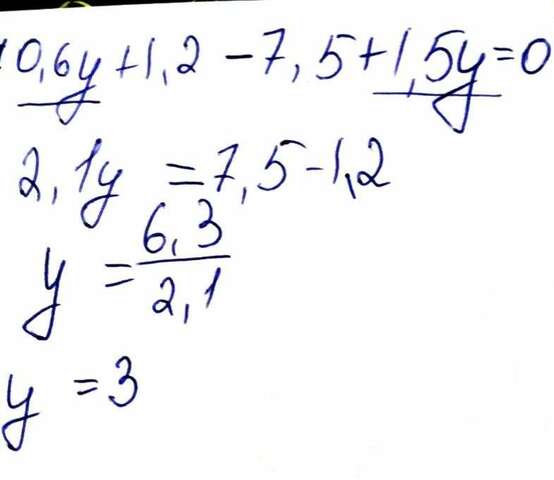 0,6y+1,2-7,5+1,5y=0
2,1y=7,5-1,2
y=6,3/2,1
y=3